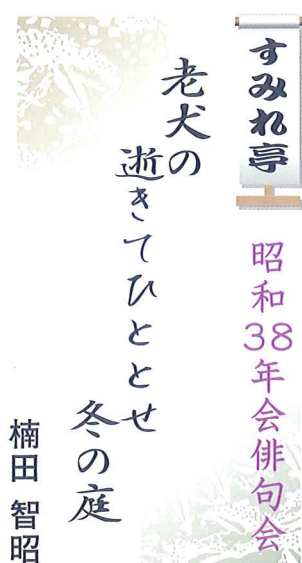 すみれ亭
昭和38年会俳句会
老犬の
逝きてひととせ
冬の庭
楠田 智昭